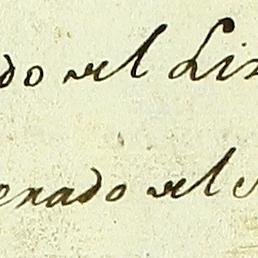 do del Lin
enado del